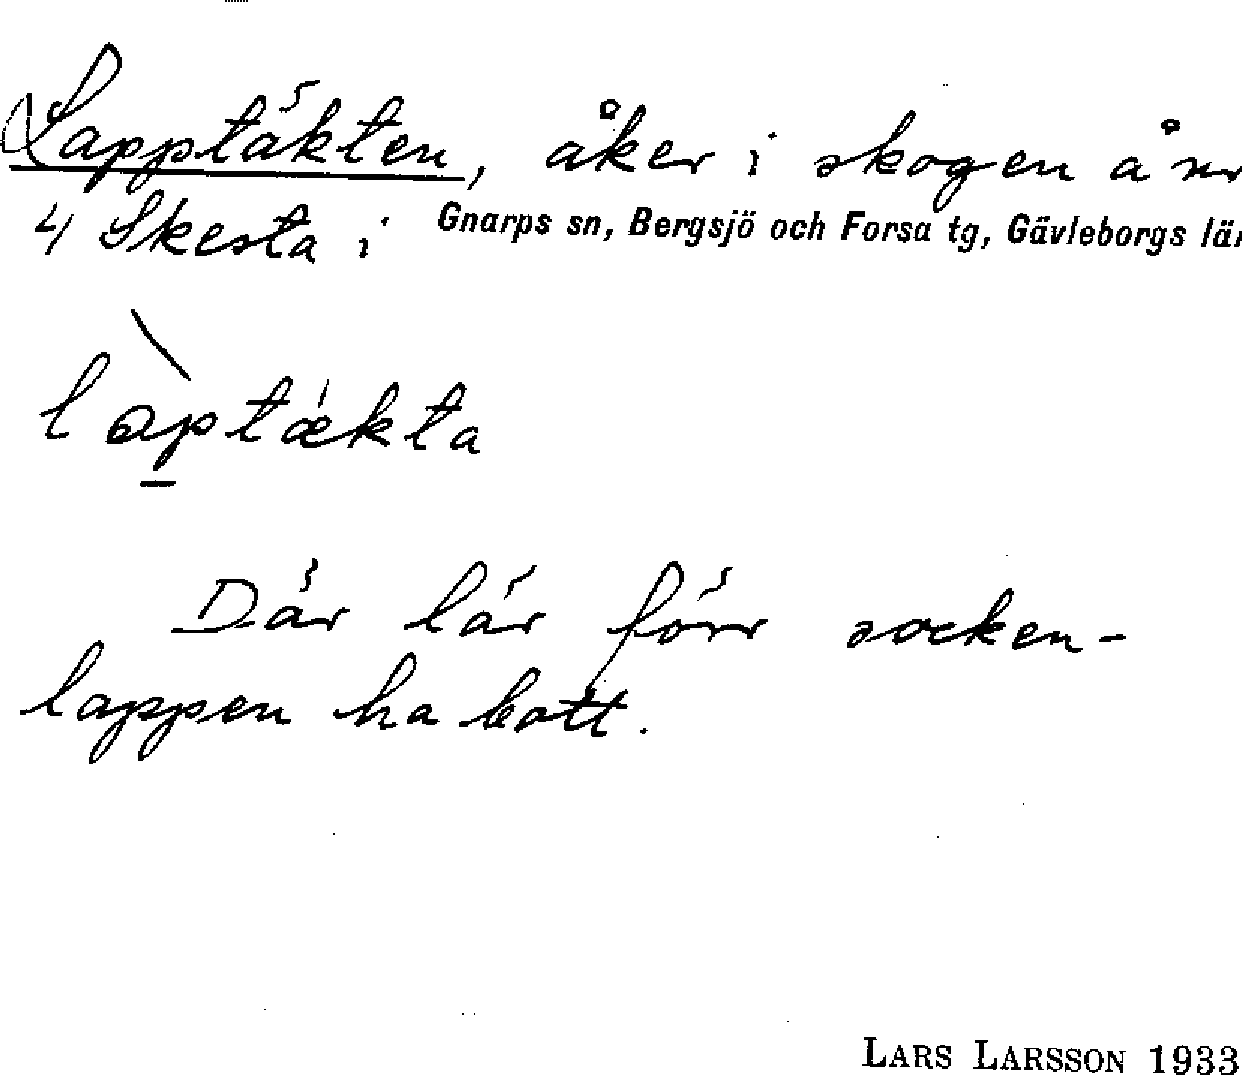 Lapptäkten, åker i skogen å nr
4 Skesta i Gnarps sn, Bergsjö och Forsa tg, Gävleborgs län
làptǽkta
Där lär förr socken-
lappen ha bott.
LARS LARSSON 1933